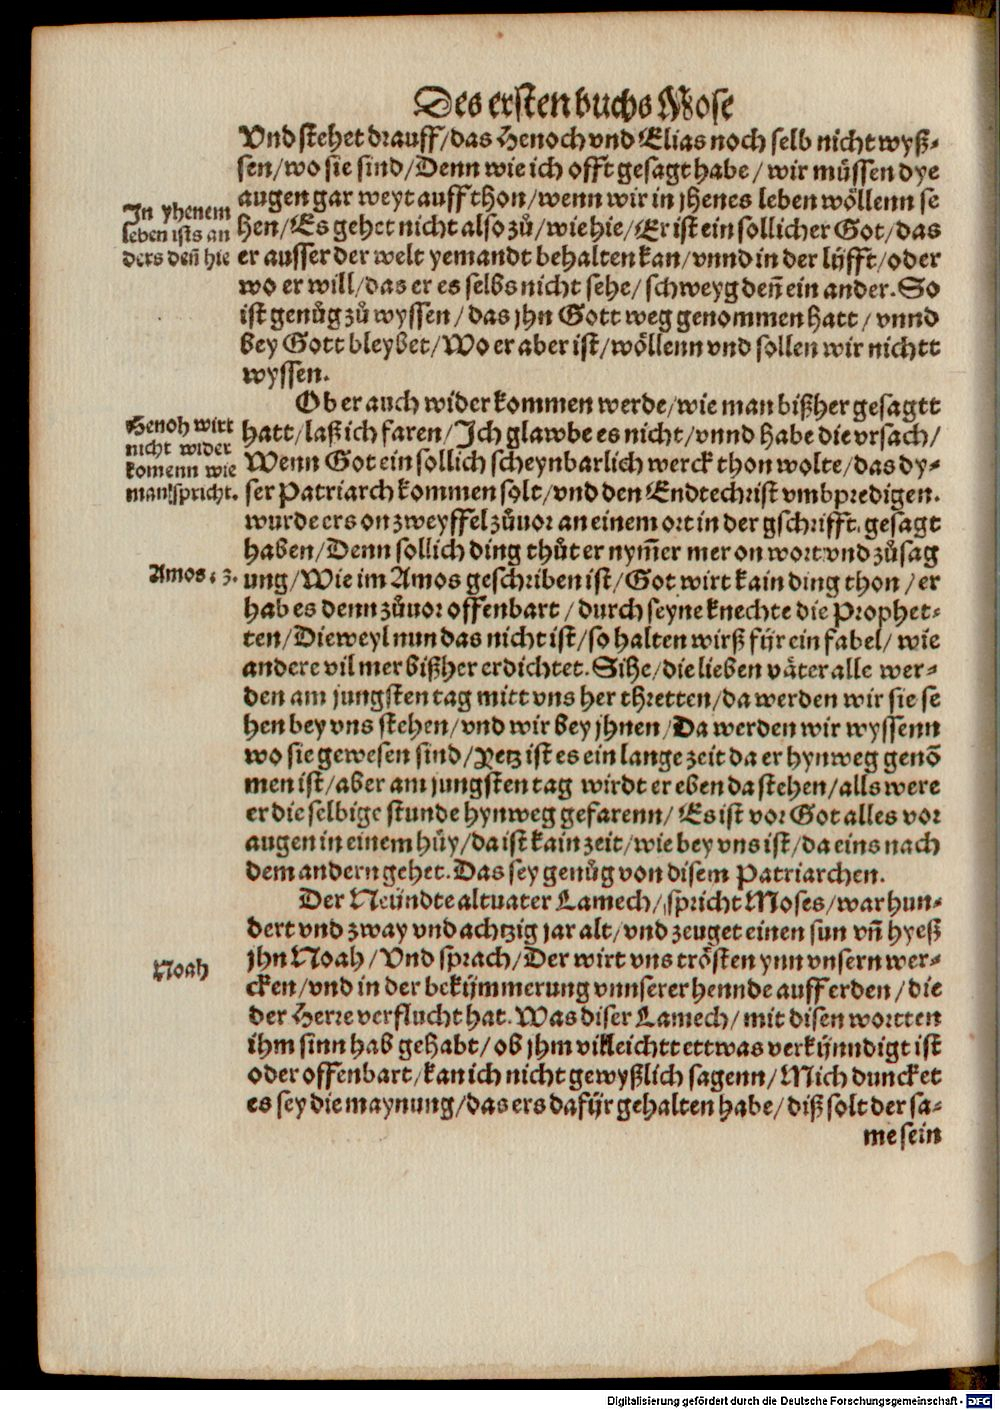 Des ersten buchs Mose
Vnd stehet drauff/das Henoch vnd Elias noch selb nicht wyß⸗
sen/wo sie sind/Denn wie ich offt gesagt habe/ wir müssen dye
augen gar weyt auff thon/wenn wir in jhenes leben wöllenn se
hen/Es gehet nicht also zů/wie hie/Er ist ein sollicher Got/das
er ausser der welt yemandt behalten kan/vnnd in der lÿfft/oder
wo er will/das er es selbs nicht sehe/schweyg deñ ein ander. So
ist genůg zů wyssen/das jhn Gott weg genommen hatt/ vnnd
bey Gott bleybet/Wo er aber ist/wöllenn vnd sollen wir nichtt
wyssen.
In yhenem
leben ists an
ders deñ hie
Ob er auch wider kommen werde/wie man bißher gesagtt
hatt/laß ich faren/Ich glawbe es nicht/vnnd habe die vrsach/
Wenn Got ein sollich scheynbarlich werck thon wolte/das dy⸗
ser Patriarch kommen solt/vnd den Endtechrist vmb predigen.
wurde ers on zweyffel zůuor an einem ort in der gschrifft gesagt
haben/Denn sollich ding thůt er nym̃er mer on wort vnd zůsag
ung/Wie im Amos geschriben ist/Got wirt kain ding thon/er
hab es denn zůuor offenbart/durch seyne knechte die Prophet⸗
ten/Dieweyl nun das nicht ist/so halten wirß fÿr ein fabel/ wie
andere vil mer bißher erdichtet. Sihe/die lieben väter alle wer⸗
den am jungsten tag mitt vns her thretten/da werden wir sie se
hen bey vns stehen/vnd wir bey jhnen/Da werden wir wyssenn
wo sie gewesen sind/Yetz ist es ein lange zeit da er hynweg genõ
men ist/aber am jungsten tag wirdt er eben da stehen/alls were
er die selbige stunde hynweg gefarenn/ Es ist vor Got alles vor
augen in einem hůy/da ist kain zeit/wie bey vns ist/da eins nach
dem andern gehet. Das sey genůg von disem Patriarchen.
Henoh wirt
nicht wider
komenn wie
man spricht.
Amos. 3.
Der Neündte altuater Lamech/spricht Moses/war hun⸗
dert vnd zway vnd achtzig jar alt/vnd zeuget einen sun vñ hyeß
jhn Noah/Vnd sprach/Der wirt vns trösten ynn vnsern wer⸗
cken/vnd in der bekÿmmerung vnnserer hennde auff erden/die
der Herre verflucht hat. Was diser Lamech/mit disen wortten
ihm sinn hab gehabt/ob jhm villeichtt ettwas verkÿnndigt ist
oder offenbart/kan ich nicht gewyßlich sagenn/Mich duncket
es sey die maynung/das ers dafÿr gehalten habe/diß solt der sa⸗
me sein
Noah
Digitalisierung gefördert durch die Deutsche Forschungsgemeinschaft - DFG